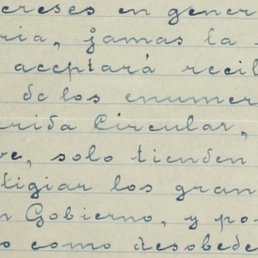 ereses en gener
ria, jamas la
aceptará recib
de los enumer
erida Circular,
ve, solo tienden
tigiar los gran
n Gobierno, y po
o como desobede